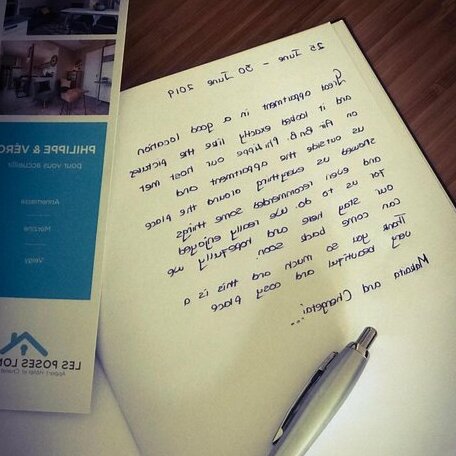 PHILIPPE & VÉRO
pour vous accueilli
Annemasse
Morzine
Veigy
LES POSES LO
25 June - 30 June 2019
Great apartment in a good location
and it looked exactly like the pictures
on Air B n B. Philippe our host met
us outside the apartment and
showed us everything around the place
and even recommended some things
for us to do. We really enjoyed
our stay here and hopefully we
can come back soon.
Thank you so much and this is a
very beautiful and cosy place
Makaita and Changetai...